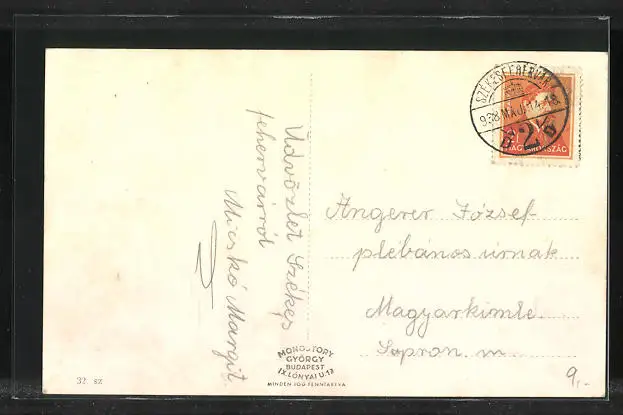 Üdvözlet Székes
fehervárról
Micskó Margit
Angerer József
plébános úrnak
Magyarkimle
Sopron. m
9.-
SZÉKESFEHÉRVÁR
938 MÁJ. 14-18
2b
MAGYARORSZÁG
MONOSTORY
GYÖRGY
BUDAPEST
IX. LÓNYAI U. 13
MINDEN JOG FENNTARTVA
32. sz